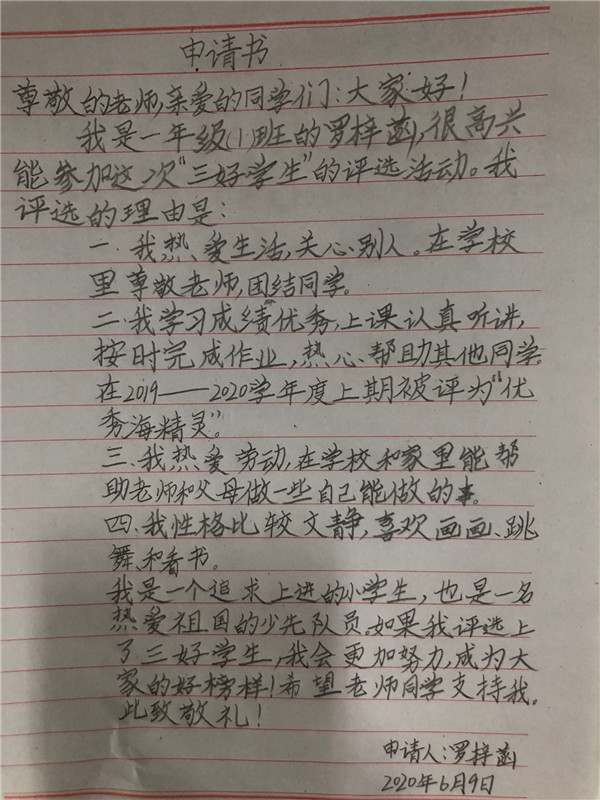 申请书
尊敬的老师,亲爱的同学们:大家好!
我是一年级(1)班的罗梓菡,很高兴
能参加这次“三好学生”的评选活动。我
评选的理由是:
一.我热爱生活,关心别人。在学校
里尊敬老师,团结同学。
二.我学习成绩优秀,上课认真听讲,
按时完成作业,热心帮助其他同学。
在2019——2020学年度上期被评为“优
秀海精灵”。
三.我热爱劳动,在学校和家里能帮
助老师和父母做一些自己能做的事。
四.我性格比较文静,喜欢画画、跳
舞、和看书。
我是一个追求上进的小学生,也是一名
热爱祖国的少先队员。如果我评选上
了三好学生,我会更加努力,成为大
家的好榜样!希望老师同学支持我。
此致敬礼!
申请人:罗梓菡
2020年6月9日